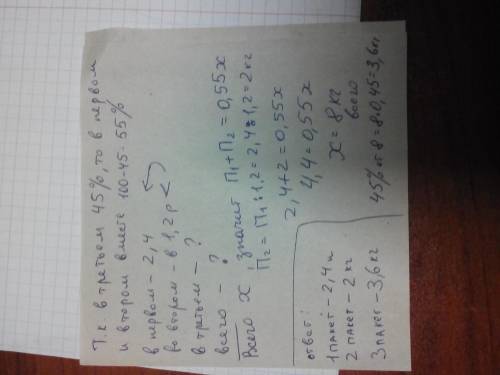 Т.к. в третьем 45%, то в первом
и втором вместе 100-45-55%
в первом - 2,4
во втором - в 1,2 р <
в третьем - ?
всего - ?
Всего x, значит П1+П2=0,55x
П2 = П1:1,2 = 2,4:1,2 = 2 кг
2,4+2=0,55x
4,4=0,55x
x = 8 кг
всего
45% от 8 = 8·0,45=3,6 кг
ответ:
1 пакет - 2,4 к
2 пакет - 2 кг
3 пакет - 3,6 кг